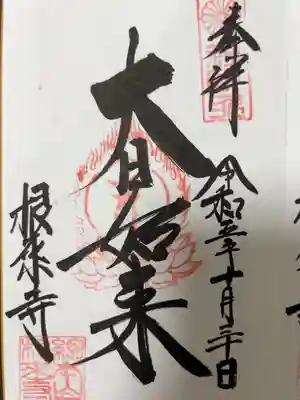 奉拝
令和五年十月二十日
大日如来
根来寺